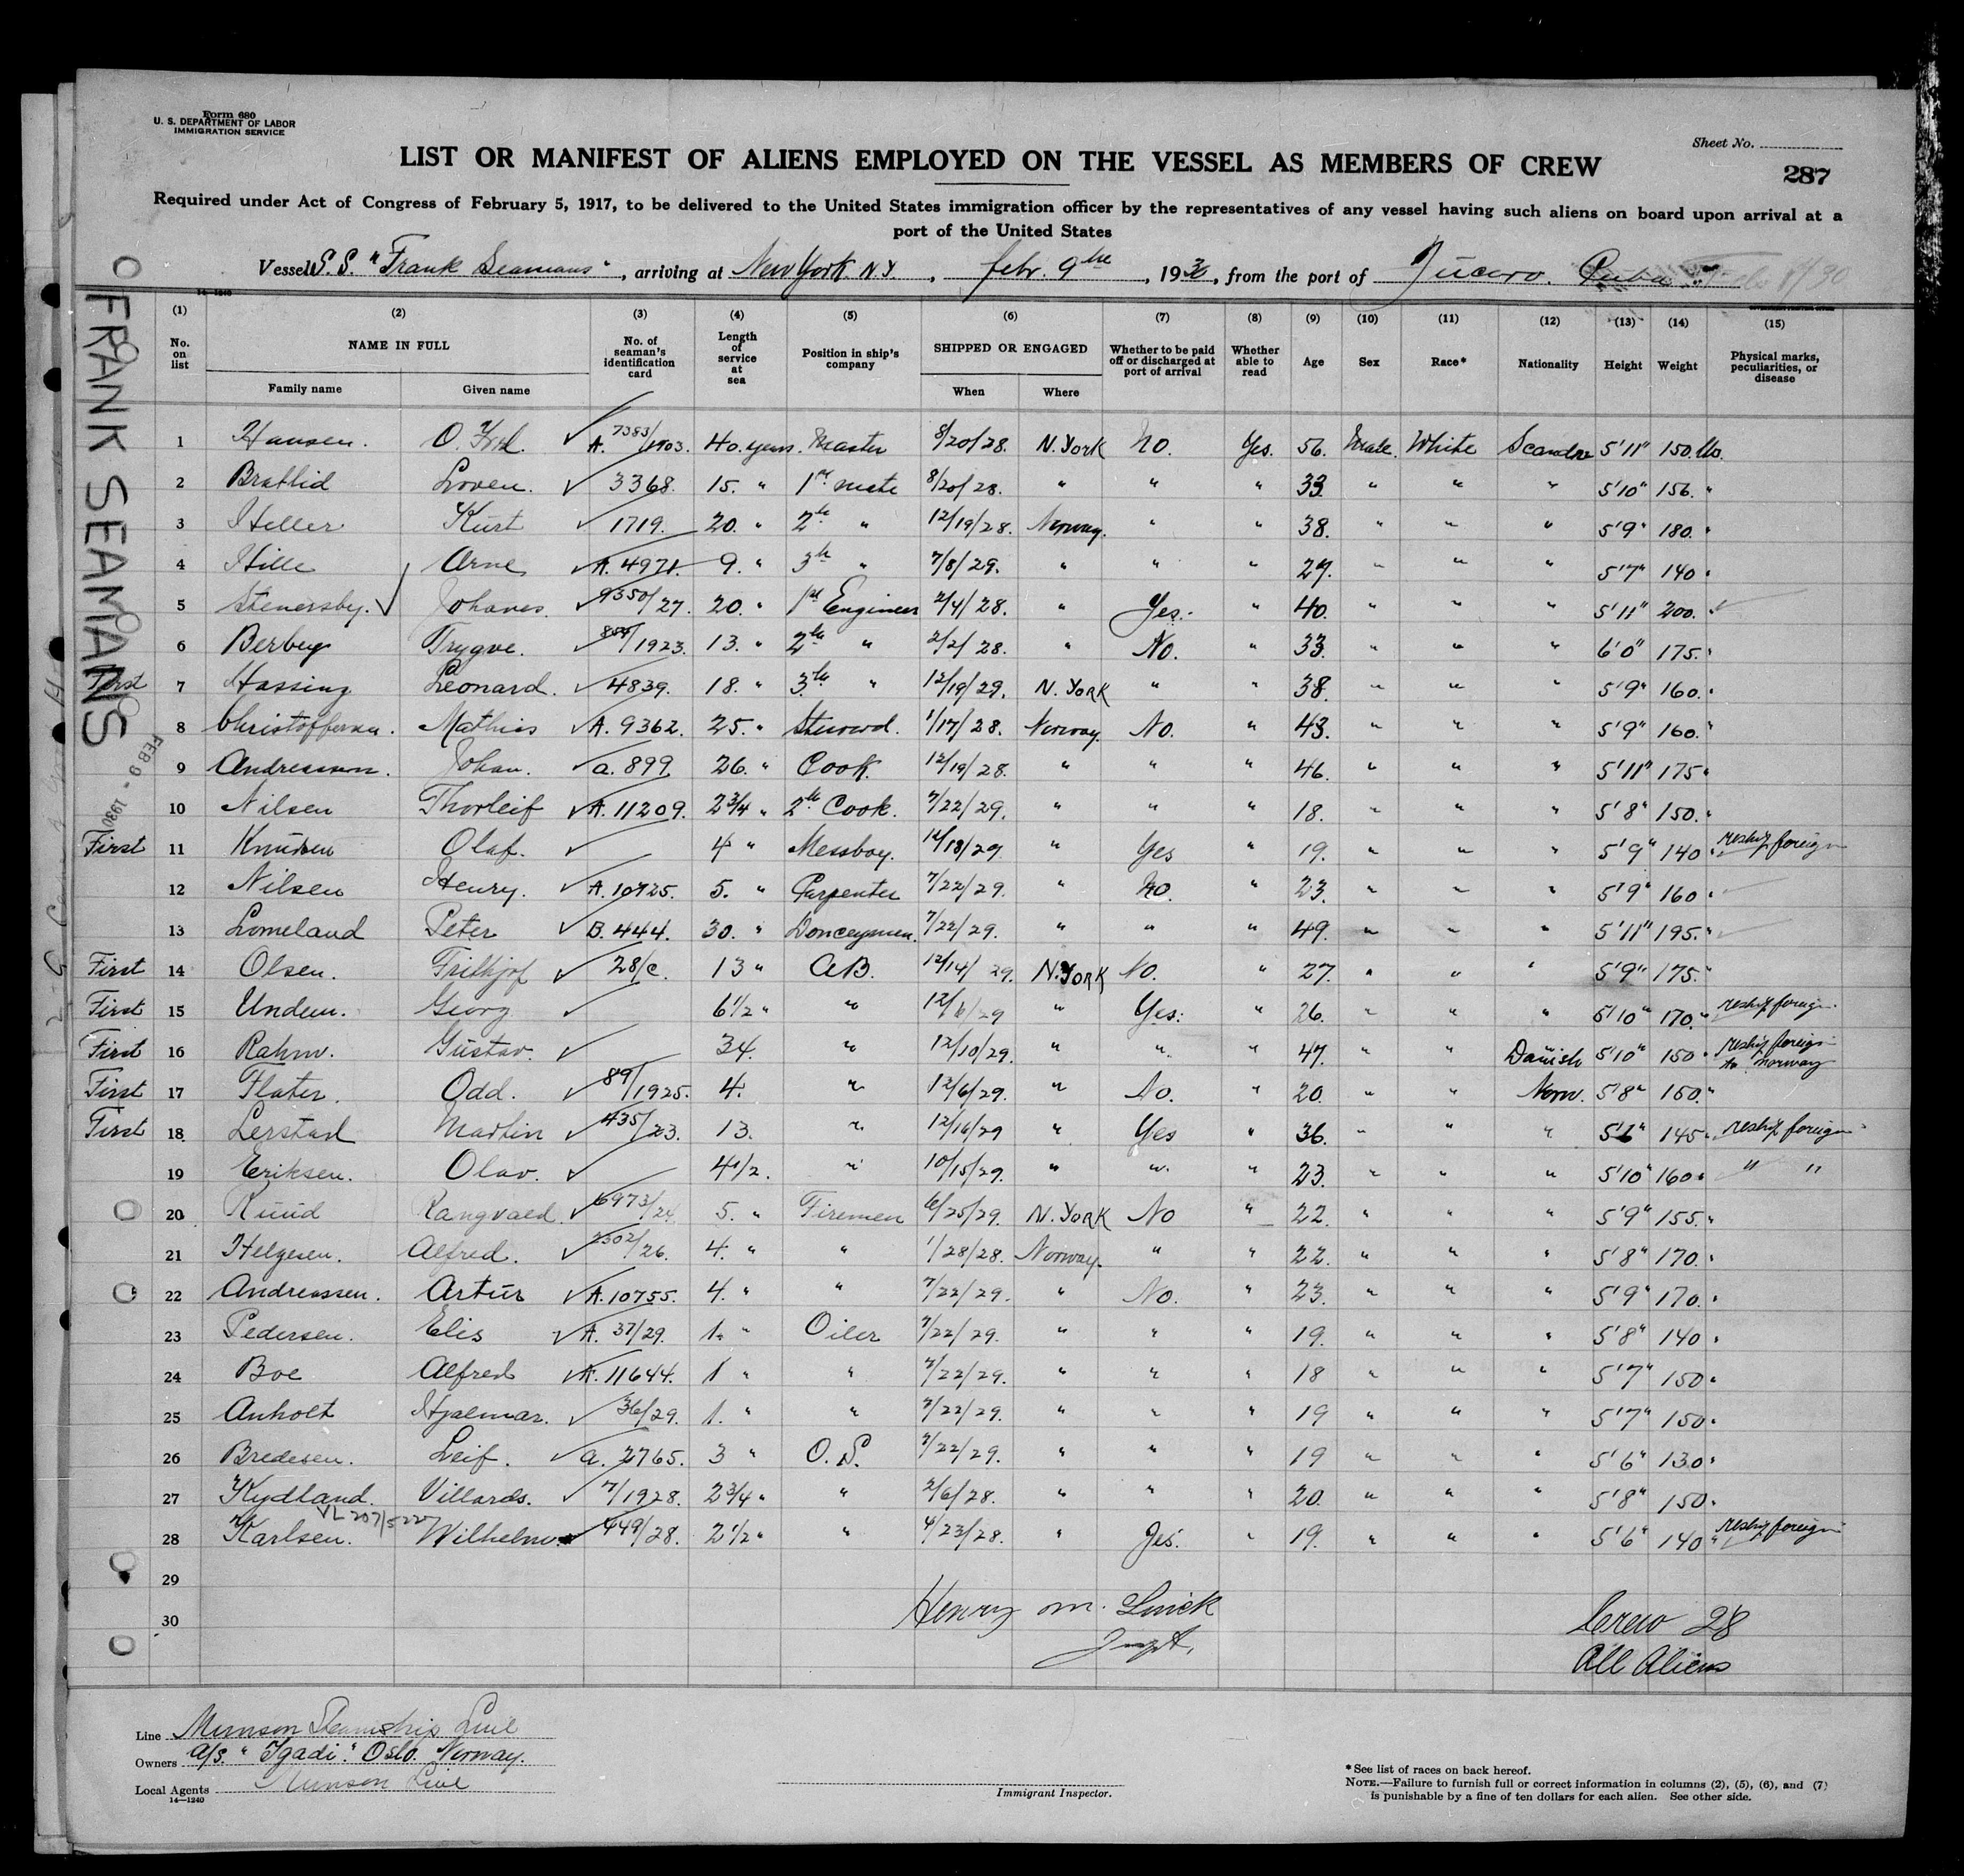 Form 680
U. S. DEPARTMENT OF LABOR
IMMIGRATION SERVICE
Sheet No.
LIST OR MANIFEST OF ALIENS EMPLOYED ON THE VESSEL AS MEMBERS OF CREW
287
Required under Act of Congress of February 5, 1917, to be delivered to the United States immigration officer by the representatives of any vessel having such aliens on board upon arrival at a
port of the United States
Vessel S.S. "Frank Seamans", arriving at New York N.Y, febr. 9the, 1930, from the port of Jucaro. Cuba
FRANK SEAMANS
FEB 9 - 1930
14—1240
(1) (2) (3) (4) (5) (6) (7) (8) (9) (10) (11) (12) (13) (14) (15)
No. on list NAME IN FULL No. of seaman's identification card Length of service at sea Position in ship's company SHIPPED OR ENGAGED Whether to be paid off or discharged at port of arrival Whether able to read Age Sex Race* Nationality Height Weight Physical marks, peculiarities, or disease
Family name Given name When Where
1 Hansen. O. A. 7383/1903. 40. years. Master 8/20/28. N. York No. Yes. 56. Male. White 5'11" 150. lbs.
2 Bratlid Loven. 3368. 15. " 1st mate 8/20/28. " " " 33. " " " 5'10" 156. "
3 Heller Kurt 1719. 20. " 2th " 12/19/28. Norway. " " 38. " " " 5'9" 180. "
4 Hille Arne A. 4971. 9. " 3th " 7/8/29. " " " 27. " " " 5'7" 140 "
5 Stenersby. Johanes. 9350/27. 20. " 1st Engineer 2/4/28. " Yes. " 40. " " " 5'11" 200. "
6 Berbey Trygve. /1923. 13. " 2th " 2/2/28. " No. " 33. " " " 6'0" 175. "
First 7 Hassing Leonard. 4839. 18. " 3th " 12/19/29. N. York " " 38. " " " 5'9" 160. "
8 Christoffersen. Mathias A. 9362. 25. " Steward. 1/17/28. Norway. No. " 43. " " " 5'9" 160. "
9 Andreassen. Johan. a. 899. 26. " Cook. 12/19/28. " " " 46. " " " 5'11" 175 "
10 Nilsen Thorleif A. 11209. 2 3/4 " 2th Cook. 7/22/29. " " " 18. " " " 5'8" 150. "
First 11 Knudsen Olaf. 4 " Messboy. 12/18/29. " Yes " 19. " " " 5'9" 140 " reship foreign
12 Nilsen Henry. A. 10725. 5. " Carpenter 7/22/29. " No. " 23. " " " 5'9" 160 "
13 Lomeland Peter B. 444. 30. " Donceymen. 7/22/29. " " " 49. " " " 5'11" 195. "
First 14 Olsen. Frithjof 28/c. 13 " A.B. 12/14/29. N. York No. " 27. " " " 5'9" 175. "
First 15 Undem. Georg 6 1/2 " " 12/6/29 " Yes. " 26. " " " 5'10" 170. " reship foreign
First 16 Rahm. Gustav. 34. " 12/10/29. " " " 47. " " Danish 5'10" 150 " reship foreign to Norway
First 17 Flater. Odd. 89/1925. 4. " 12/6/29. " No. " 20. " " Norw. 5'8" 150. "
First 18 Lerstad Martin 435/23. 13. " 12/16/29 " Yes " 36. " " " 145 " reship foreign
19 Eriksen. Olav. 4 1/2. " 10/15/29. " " " 23. " " " 5'10" 160 " " "
20 Ruud Rangvaed. 6973/24. 5. " Firemen 6/25/29. N. York No " 22. " " " 5'9" 155. "
21 Helgesen. Alfred. 2302/26. 4. " " 1/28/28. Norway. " " 22. " " " 5'8" 170. "
22 Andreassen. Artur A. 10755. 4. " " 7/22/29. " No. " 23. " " " 5'9" 170. "
23 Pedersen. Elis A. 37/29. 1. " Oiler 7/22/29. " " " 19. " " " 5'8" 140 "
24 Boe Alfred A. 11644. 1 " " 7/22/29. " " " 18 " " " 5'7" 150 "
25 Anholt Hjalmar. 36/29. 1. " " 7/22/29. " " " 19 " " " 5'7" 150. "
26 Bredesen. Leif. a. 2765. 3 " O.S. 7/22/29. " " " 19 " " " 5'6" 130 "
27 Kydland. Villards. 7/1928. 2 3/4 " " 2/6/28. " " " 20. " " " 5'8" 150. "
VL 207/5227
28 Karlsen. Wilhelm. 449/28. 2 1/2 " " 4/23/28. " Yes. " 19. " " " 5'6" 140 " reship foreign
29
30
Henry M.
Inspt.
Crew 28
All Aliens
Line Munson Steamship Line
Owners A/S. "Ygadi." Oslo. Norway.
Local Agents Munson Line
14—1240
Immigrant Inspector.
* See list of races on back hereof.
NOTE.—Failure to furnish full or correct information in columns (2), (5), (6), and (7)
is punishable by a fine of ten dollars for each alien. See other side.